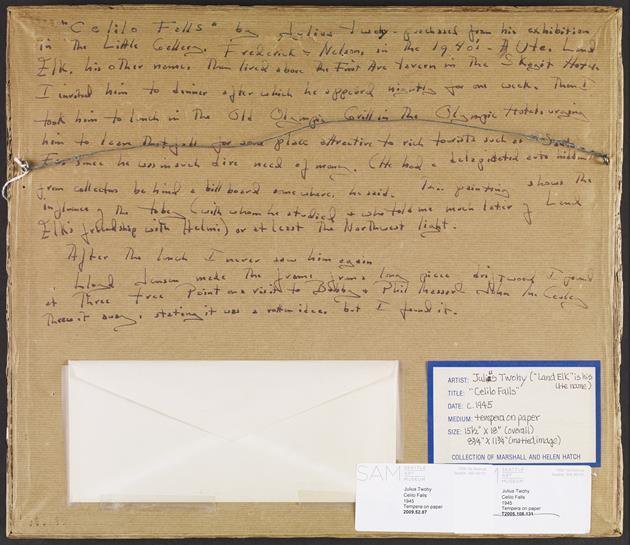 "Celilo Falls" by Julius Twohy - purchased from his exhibition
in The Little Gallery, Frederick & Nelson, in the 1940's - A Ute. Land
Elk, his other name. Then lived above the First Ave Tavern in the Skagit Hotel.
I invited him to dinner after which he appeared nightly for one week. Then I
took him to lunch in The Old Olympic Grill in The Olympic Hotel urging
him to leave for some place attractive to rich tourists such as Santa
Fe since he was in such dire need of money. (He had a delapidated auto hidden
from collectors behind a bill board somewhere, he said. This painting shows The
influence of the Tobey (with whom he studied & who told me much later of Land
Elk's friendship with Helmi) or at least The Northwest light.
After The lunch I never saw him again
Lloyd Jensen made The frame from a long piece driftwood I found
at Three Tree Point on a visit to Bobby & Phil John McCauley
threw it away, stating it was a rotten idea, but I found it.
ARTIST: Julius Twohy ("Land Elk" is his
Ute name)
TITLE: "Celilo Falls"
DATE: c. 1945
MEDIUM: tempera on paper
SIZE: 15½" x 18" (overall)
8¾" x 11¾" (matted image)
COLLECTION OF MARSHALL AND HELEN HATCH
SAM SEATTLE
ART
MUSEUM
Julius Twohy
Celilo Falls
1945
Tempera on paper
2009.52.87
SEATTLE
ART
MUSEUM
Julius Twohy
Celilo Falls
1945
Tempera on paper
T2005.108.131